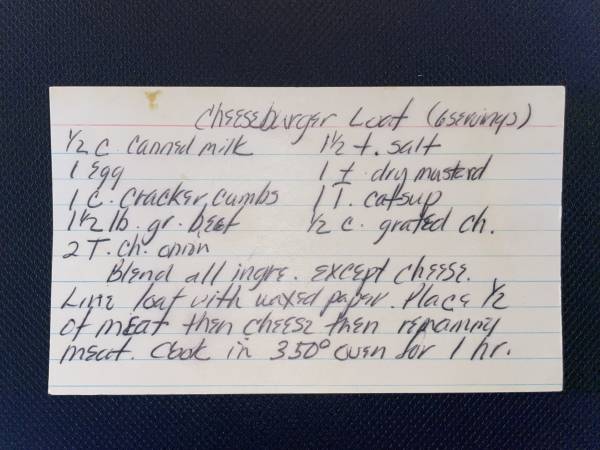 Cheeseburger Loaf (6 servings)
1/2 c. canned milk 1 1/2 t. salt
1 egg 1 t. dry mustard
1 c. cracker cumbs 1 T. catsup
1 1/2 lb. gr. beef 1/2 c. grated ch.
2 T. ch. onion
Blend all ingre. except cheese.
Line loaf with waxed paper. Place 1/2
of meat then cheese then remaining
meat. Cook in 350° oven for 1 hr.